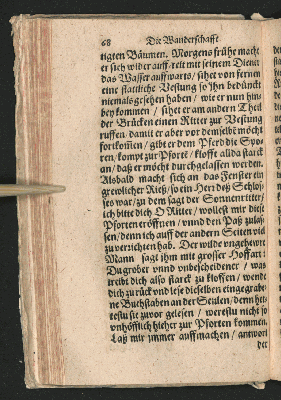 68 Die Wanderschafft
tigten Bäumen. Morgens frühe macht
er sich wider auff, reit mit seinem Diener
das Wasser auffwarts, sihet von fernen
eine stattliche Vestung so ihn bedünckt
niemals gesehen haben, wie er nun hin-
bey kommen, sihet er am andern Theil
der Brücken einen Ritter zur Vestung
ruffen, damit er aber vor demselbē möcht
fortkom̃en, gibt er dem Pferd die Spo-
ren, kompt zur Pforte, klofft allda starck
an, daß er möcht durchgelassen werden.
Alsbald macht sich an das Fenster ein
grewlicher Rieß, so ein Herr deß Schlos-
ses war, zu dem sagt der Sonnenritter,
ich bitte dich O Ritter, wollest mir diese
Pforten eröffnen, vnnd den Paß zulas-
sen, denn ich auff der andern Seiten viel
zu verrichten hab. Der wilde vngehewre
Mann sagt ihm mit grosser Hoffart:
Du grober vnnd vnbescheidener, was
treibt dich also starck zu kloffen, wende
dich zu rück vnd lese dieselben eingegrabe-
ne Buchstaben an der Seulen, denn het-
testu sie zuvor gelesen, werestu nicht so
vnhöfflich hieher zur Pforten kommen.
Laß mir immer auffmachen, antwort
der